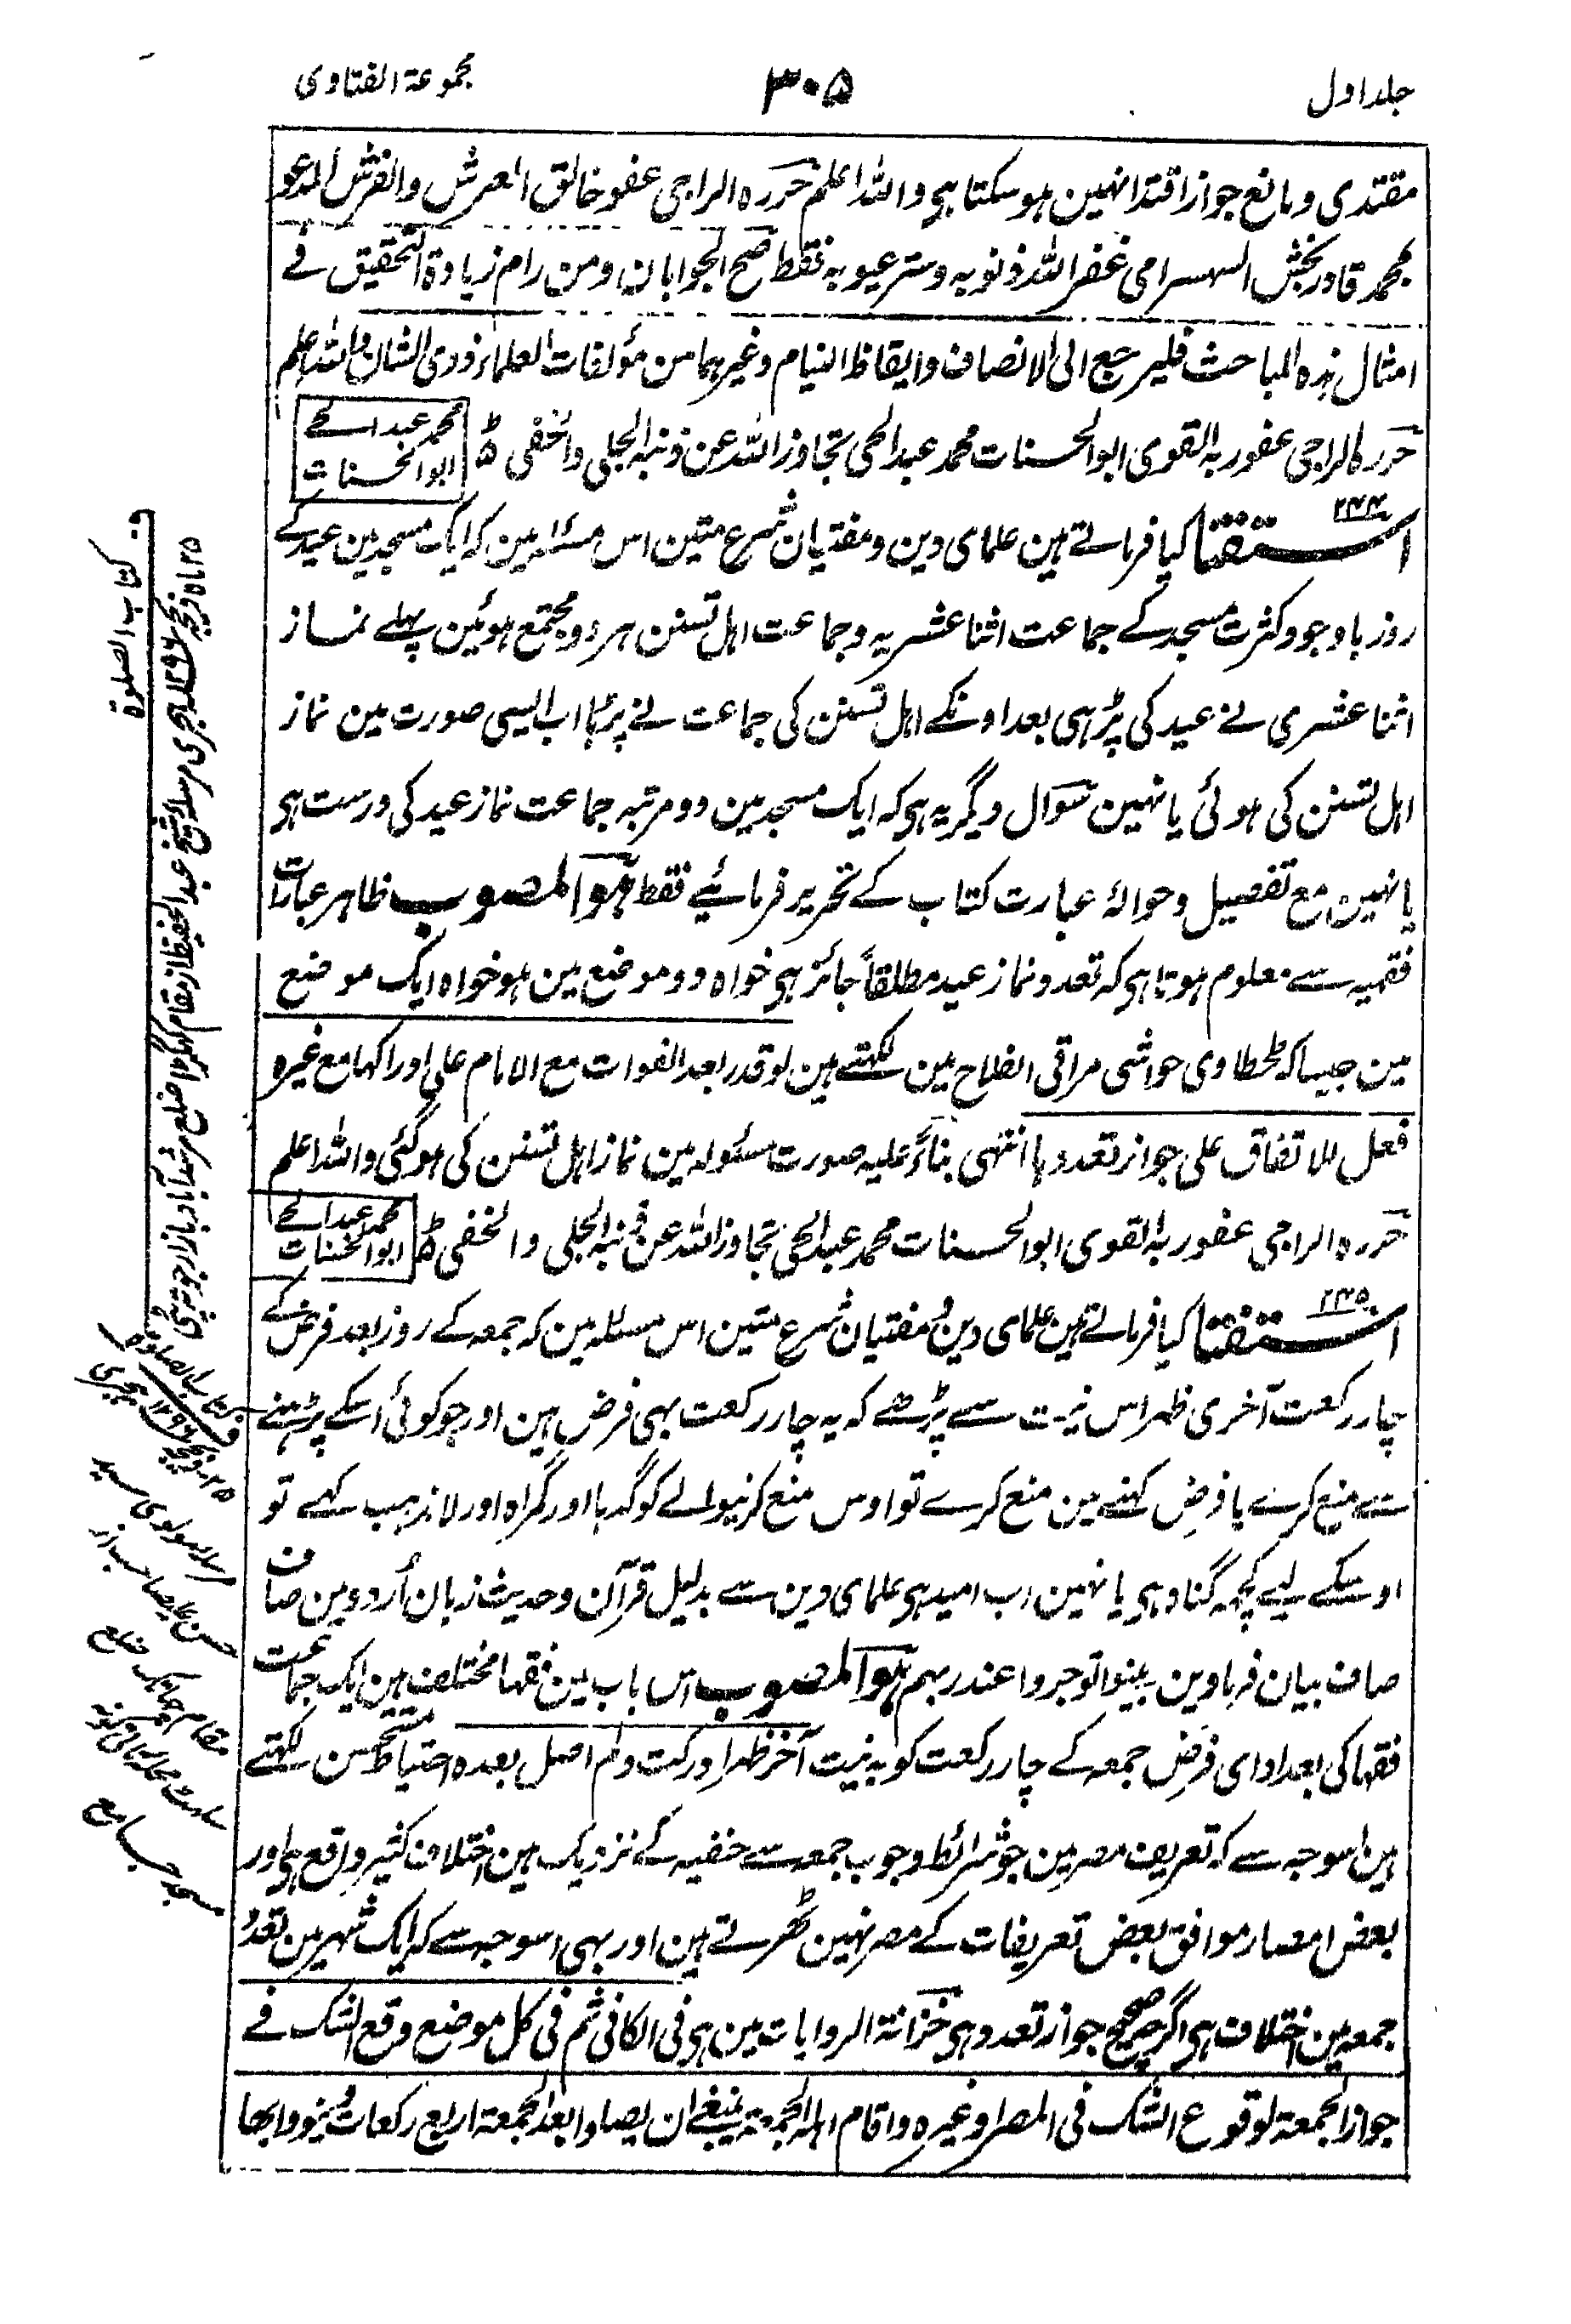 جلد اول
۳۰۵
مجموعۃ الفتاوی
مقتدی و مانع جواز اقتدا نہین ہوسکتا ہی واللہ اعلم حررہ الراجی عفو خالق العرش والفرش المدعو
بمحمد قادر بخش السہسرامی غفر اللہ ذنوبہ وستر عیوبہ فقط صح الجوابان ومن رام زیادۃ التحقیق فے
امثال ہذہ المباحث فلیرجع الی الانصاف وایقاظ النیام وغیرہما من مؤلفات العلماء ذوی الشان واللہ اعلم
حررہ الراجی عفو ربہ القوی ابو الحسنات محمد عبد الحی تجاوز اللہ عن ذنبہ الجلی والخفی ؕ
محمد عبد الحے
ابو الحسنات
۲۴۴
استفتا کیا فرماتے ہین علمای دین و مفتیان شرع متین اس مسئلہ مین کہ ایک مسجد مین عید کے
روز باوجود کثرت مسجد کے جماعت اثنا عشریہ وجماعت اہل تسنن ہر دو مجتمع ہوئین پہلے نماز
اثنا عشری نے عید کی پڑہی بعد اونکے اہل تسنن کی جماعت نے پڑہا اب ایسی صورت مین نماز
اہل تسنن کی ہوئی یا نہین سوال دیگر یہ ہی کہ ایک مسجد مین دو مرتبہ جماعت نماز عید کی درست ہی
یا نہین مع تفصیل وحوالۂ عبارت کتاب کے تحریر فرمائیے فقط ہو المصوب ظاہر عبارات
فقہیہ سے معلوم ہوتا ہی کہ تعدد نماز عید مطلقاً جائز ہی خواہ دو موضع مین ہو خواہ ایک موضع
مین جیسا کہ طحطاوی حواشی مراقی الفلاح مین لکہتے ہین لو قدر بعد الفوات مع الامام علی ادراکہا مع غیرہ
فعل للاتفاق علی جواز تعددہا انتہی بناءً علیہ صورت مسئولہ مین نماز اہل تسنن کی ہوگئی واللہ اعلم
حررہ الراجی عفو ربہ القوی ابو الحسنات محمد عبد الحی تجاوز اللہ عن ذنبہ الجلی والخفی ؕ
محمد عبد الحے
ابو الحسنات
۲۴۵
استفتا کیا فرماتے ہین علمای دین و مفتیان شرع متین اس مسئلہ مین کہ جمعہ کے روز بعد فرض کے
چار رکعت آخری ظہر اس نیت سے پڑھے کہ یہ چار رکعت بہی فرض ہین اور جو کوئی اسکے پڑہنے
سے منع کرے یا فرض کہنے مین منع کرے تو اوس منع کرنیوالے کو گدہا اور گمراہ اور لا مذہب کہے تو
اوسکے لیے کچہ گناہ ہی یا نہین اب امید ہی علمای دین سے بدلیل قرآن وحدیث زبان اُردو مین صاف
صاف بیان فرماوین بینوا توجروا عند ربہم ہو المصوب اس باب مین فقہا مختلف ہین ایک جماعت
فقہا کی بعد ادای فرض جمعہ کے چار رکعت کو بہ نیت آخر ظہر ادرکت ولم اصل بعدہ احتیاطا مستحسن لکہتے
ہین اسوجہ سے کہ تعریف مصر مین جو شرائط وجوب جمعہ سے حنفیہ کے نزدیک ہین اختلاف کثیر واقع ہی اور
بعض امصار موافق بعض تعریفات کے مصر نہین ٹھرتے ہین اور بہی اسوجہ سے کہ ایک شہر مین تعدد
جمعہ مین اختلاف ہی اگرچہ صحیح جواز تعدد ہی خزانۃ الروایات مین ہی فی الکافی ثم فی کل موضع وقع الشک فے
جواز الجمعۃ لوقوع الشک فی المصر او غیرہ واقام اہلہ الجمعۃ ینبغے ان یصلوا بعد الجمعۃ اربع رکعات وینووا بہا
کتاب الصلوۃ
۲۵ ماہ ذیحجہ ۱۲۹۶ ہجری مرسلہ شیخ عبد الحفیظ از مقام ضلع مرشدآباد بازار
کتاب الصلوۃ
۲۵ ذیحجہ ۱۲۹۶ ہجری
مرسلہ مولوی سید
حسن علی صاحب از
مقام ضلع
مسجد جامع